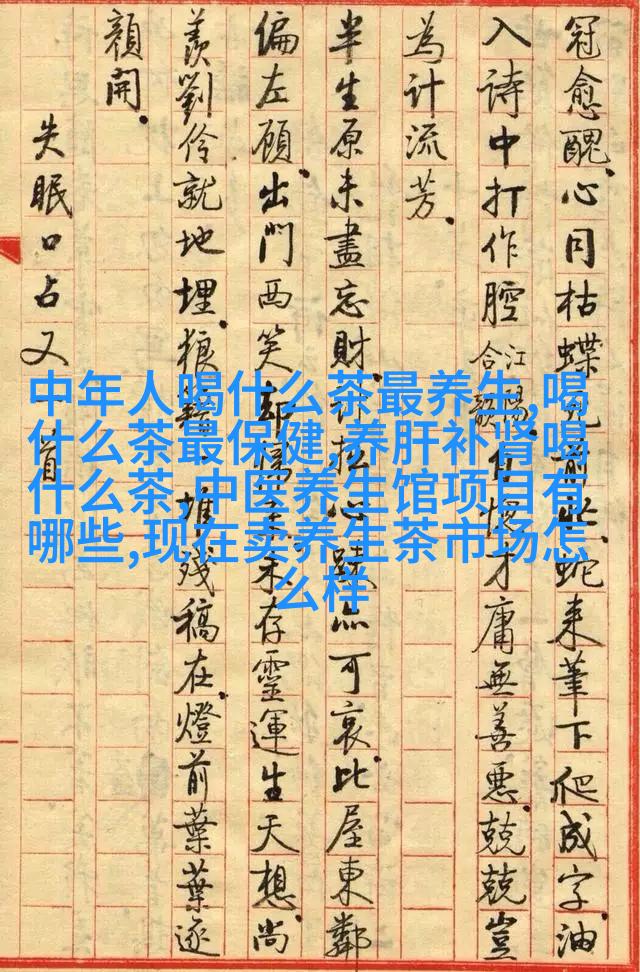 冠愈醜。心同枯蝶前些。蛇来筆下爬成字。油
入詩中打作腔。合江陽韻自懺才庸無善惡。兢兢豈
為計流芳。
半生原未盡忘財。計拙心疎亦可哀。比屋東鄰
偏左顧。出門西笑却慵来。未存靈運生天想。尚
羨劉伶就地埋。狼籍一堆残稿在。燈前葉葉逐
顔開。
失眠口占又一首
中年人喝什么茶最养生,喝
什么茶最保健,养肝补肾喝
什么茶,中医养生馆项目有
哪些,现在卖养生茶市场怎
么样